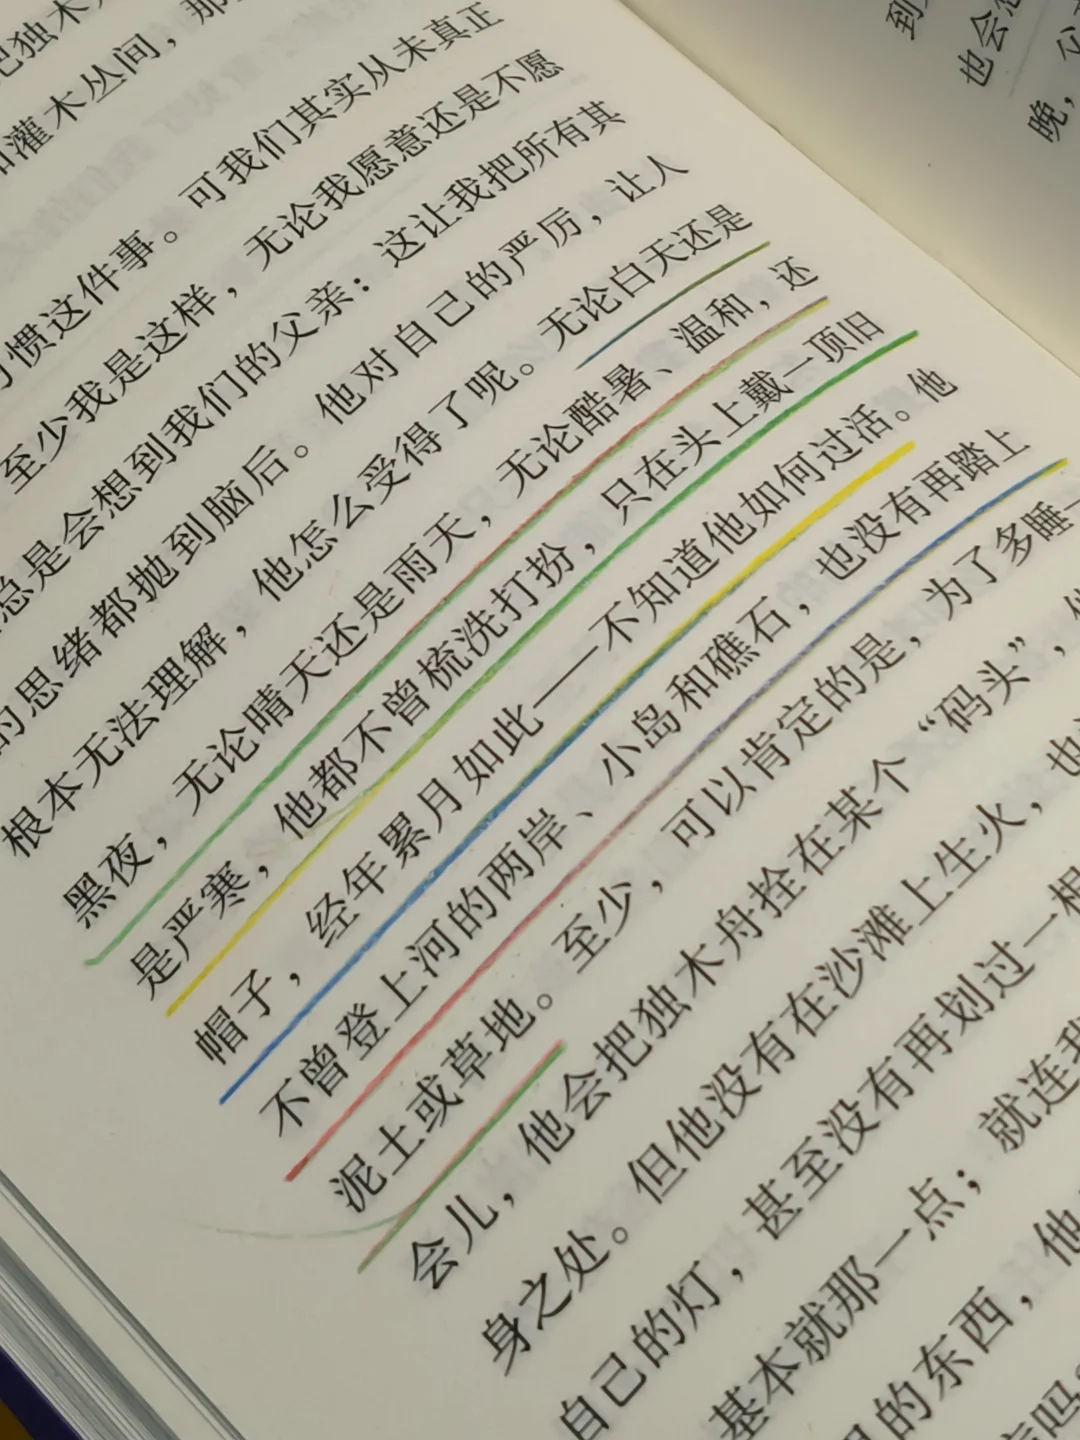 把独木
灌木丛间，那
惯这件事。可我们其实从未真正
至少我是这样，无论我愿意还是不愿
总是会想到我们的父亲：这让我把所有其
的思绪都抛到脑后。他对自己的严厉，让人
根本无法理解，他怎么受得了呢。无论白天还是
黑夜，无论晴天还是雨天，无论酷暑、温和，还
是严寒，他都不曾梳洗打扮，只在头上戴一顶旧
帽子，经年累月如此——不知道他如何过活。他
不曾登上河的两岸、小岛和礁石，也没有再踏上
泥土或草地。至少，可以肯定的是，为了多睡一
会儿，他会把独木舟拴在某个“码头”，
身之处。但他没有在沙滩上生火，也
自己的灯，甚至没有再划过一根
基本就那一点；就连我
的东西，他
吗
到
也会
晚，